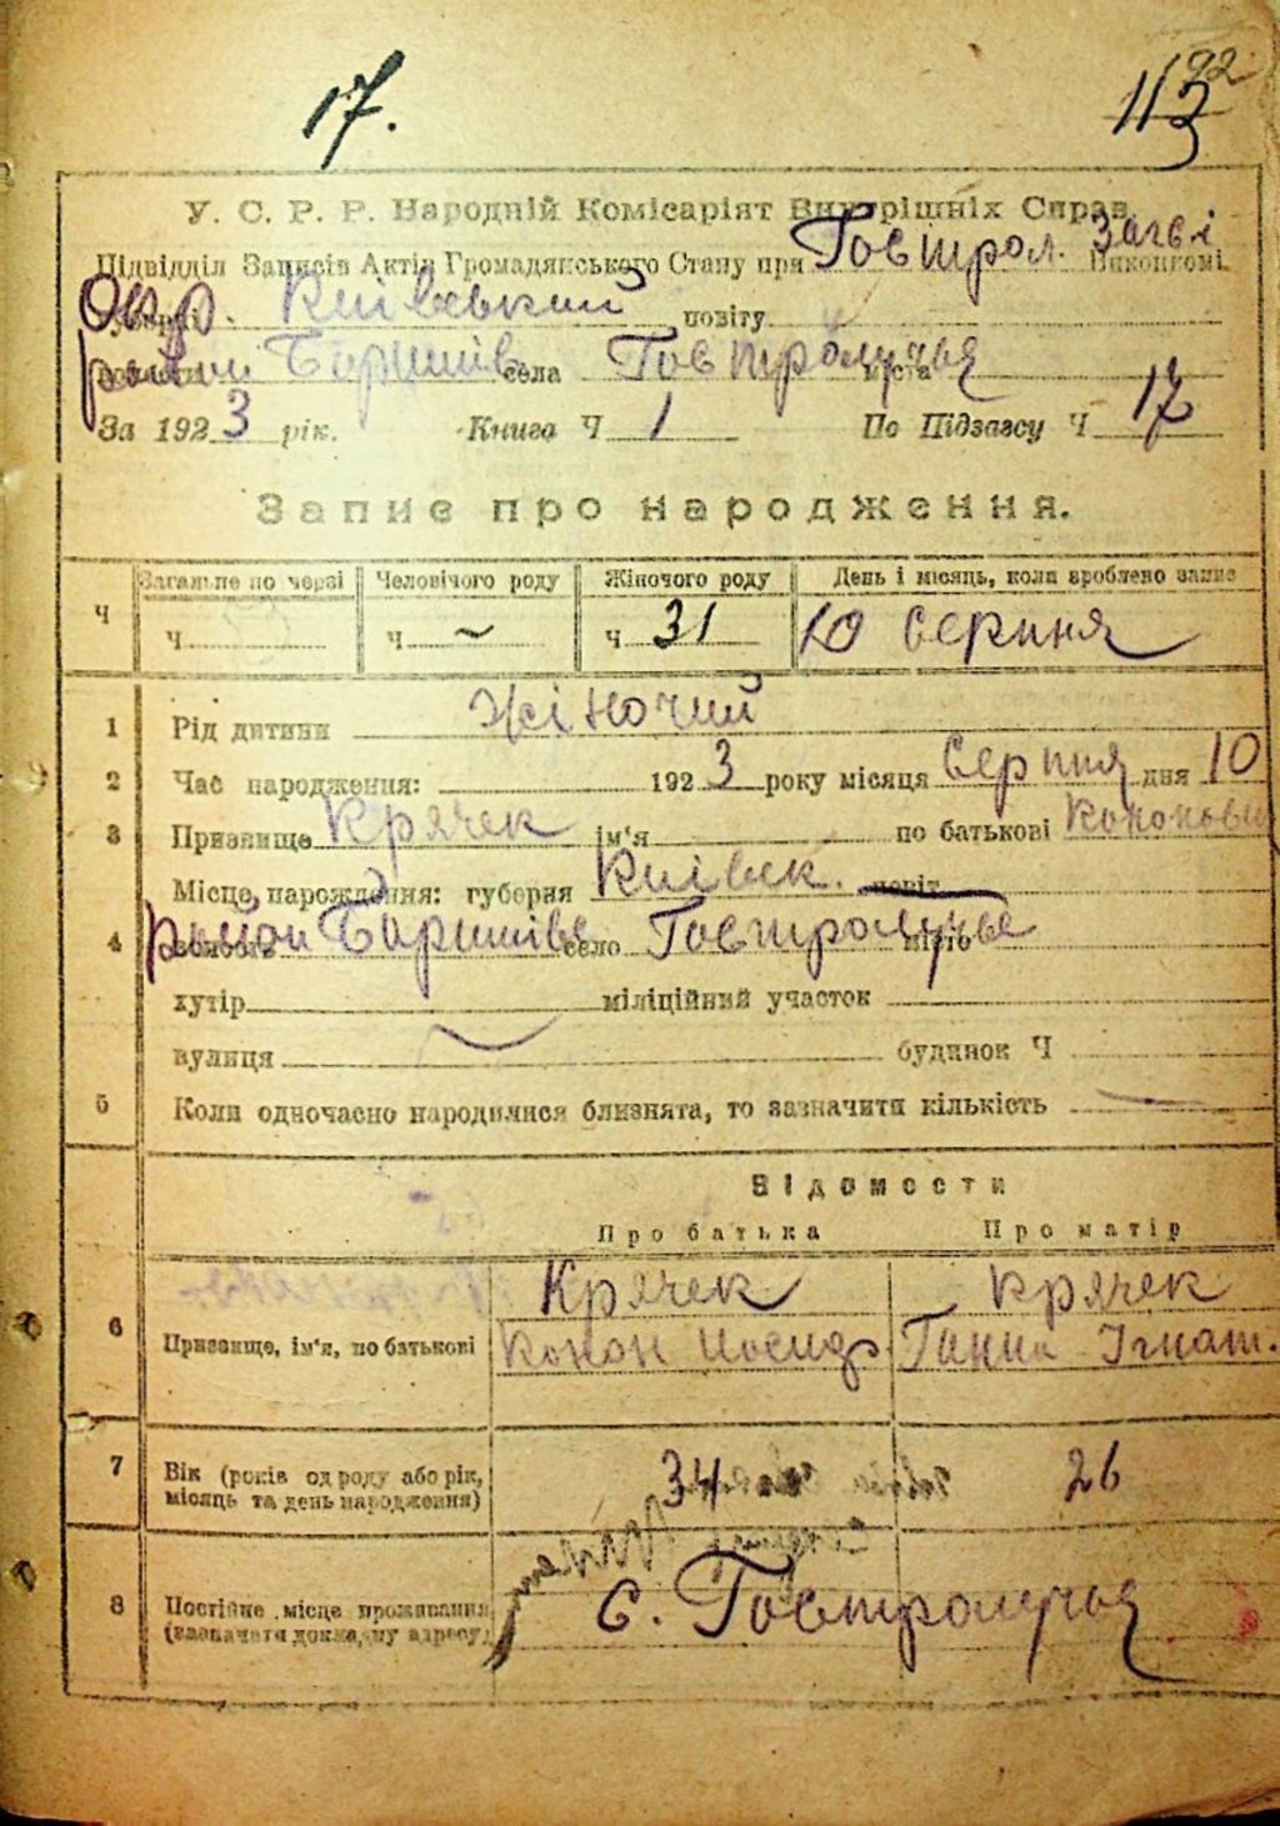 17.
113 92
У. С. Р. Р. Народній Комісаріят Внутрішніх Справ.
Підвідділ Записів Актів Громадянського Стану при Гостррол. Загсі Виконкомі
Окр. Київський повіту
район Баришів села Гостролуччя міста
За 1923 рік. Книга Ч 1 По Підзагсу Ч 17
Запис про народження.
Загальне по черзі Человічого роду Жіночого роду День і місяць, коли зроблено запис
Ч Ч Ч ~ Ч 31 10 серпня
1 Рід дитини жіночий
2 Час народження: 1923 року місяця серпня дня 10
3 Призвище Крячек ім'я по батькові Кононовн
Місце народження: губерня Київськ. повіт
4 район Баришівс село Гостролуччя місто
хутір міліційний участок
вулиця будинок Ч
5 Коли одночасно народилися близнята, то зазначити кількість
Відомости
Про батька Про матір
Крячек Крячек
6 Призвище, ім'я, по батькові Конон Иосиф. Ганна Ігнат.
7 Вік (років од роду або рік, 34 26
місяць та день народження)
8 Постійне місце проживання с. Гостролуччя
(зазначити докладну адресу)